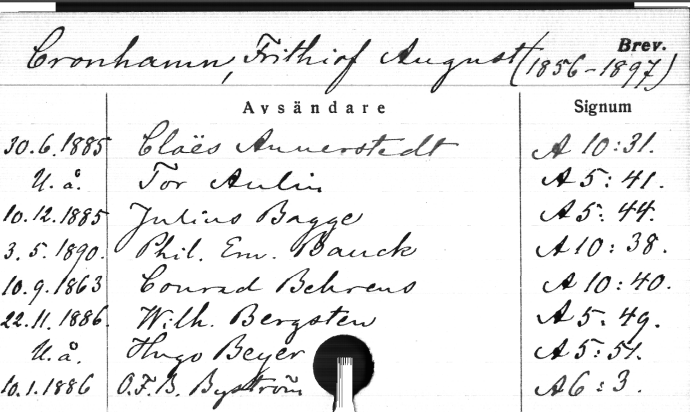 Brev.
Cronhamn, Frithiof August (1856-1897)
Avsändare Signum
30.6.1885 Claës Annerstedt A 10:31.
U. å. Tor Aulin A 5:41.
10.12.1885 Julius Bagge A 5:44.
3.5.1890. Phil. Em. Bauck A 10:38.
10.9.1863 Conrad Behrens A 10:40.
22.11.1886. Wilh. Bergsten A 5:49.
U. å. Hugo Beyer A 5:51.
10.1.1886 O.F.B. Byström A 6:3.